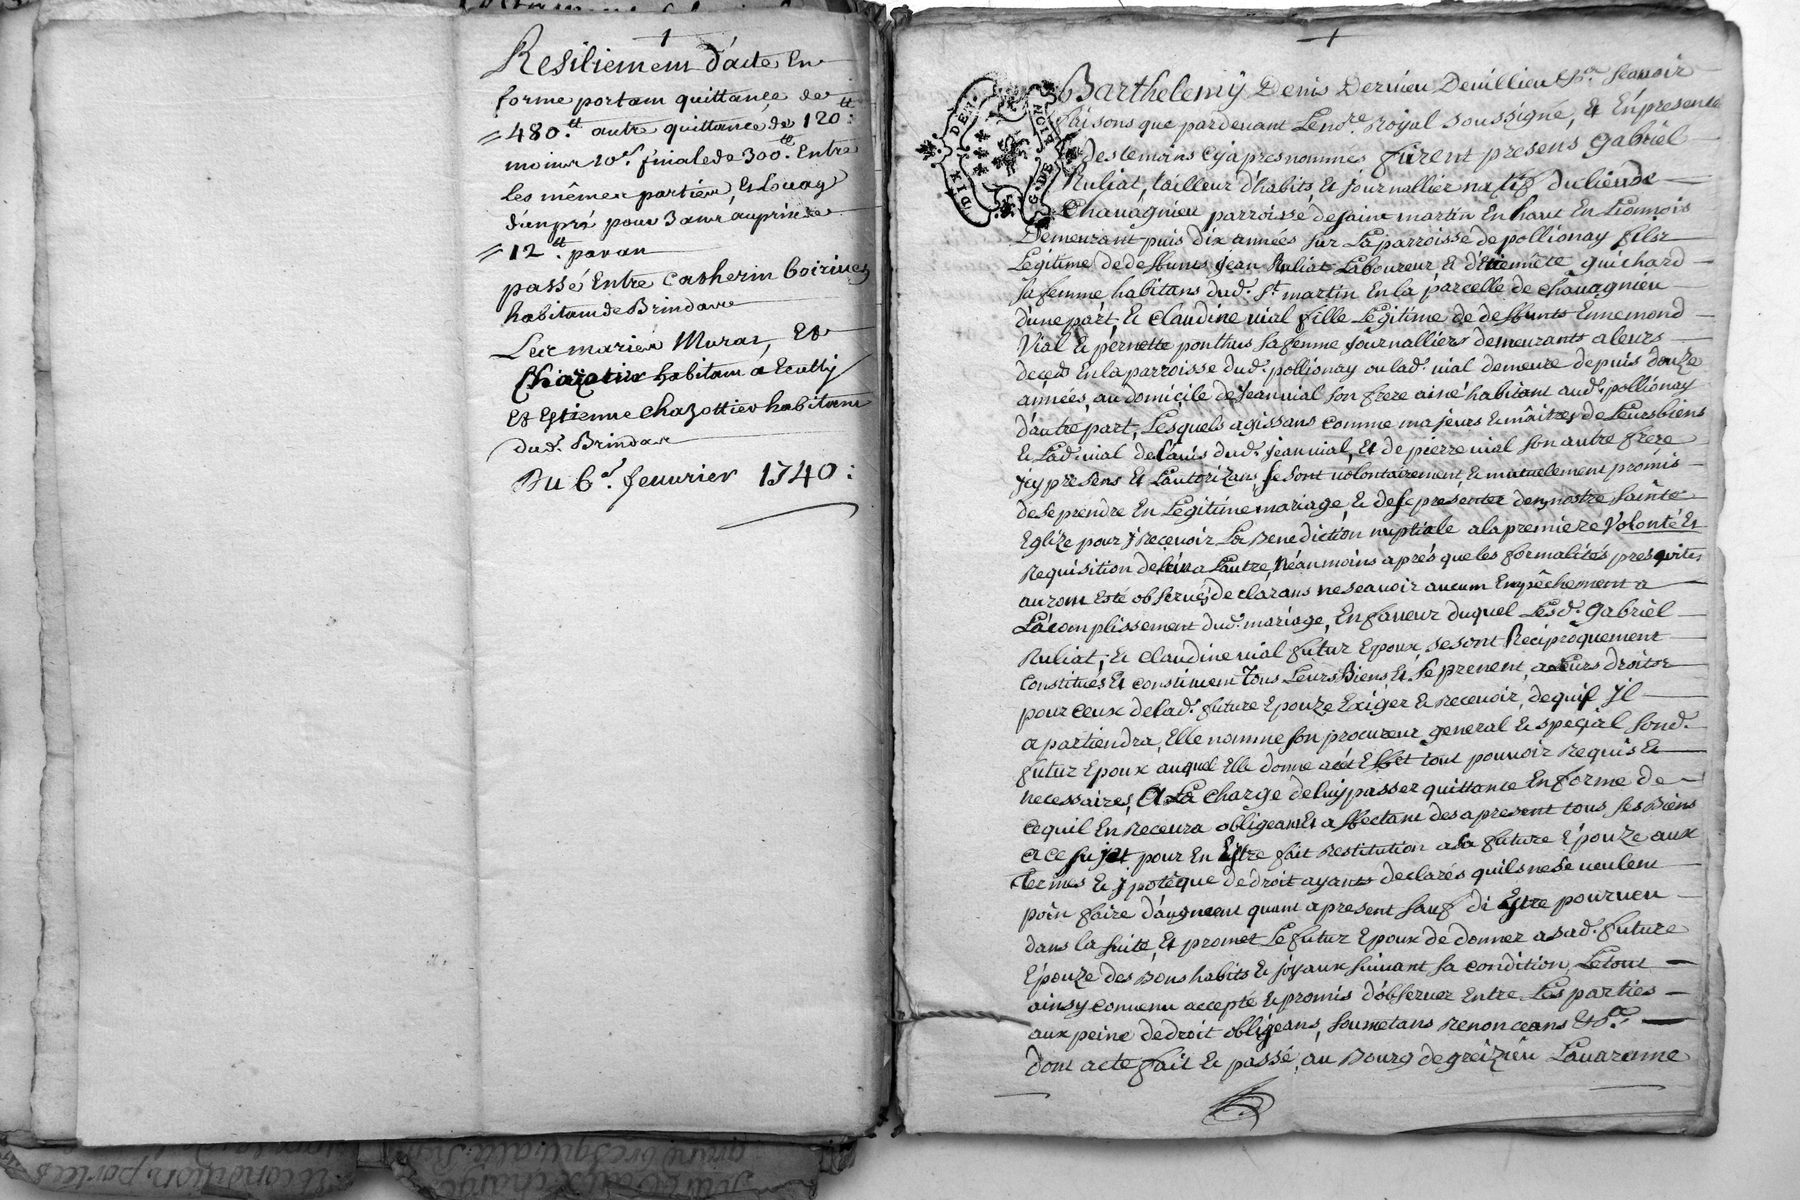 Resiliement d'acte En
forme portant quittance de
480.tt autre quittance de 120.tt
moins 10s. finale de 300.tt Entre
les mêmes parties, Et Louag
d'un pré pour 3 ans, au prix de
12.tt par an
passé Entre Catherin
habitant de Brindas
Muras, Et
habitant a Ecully
Et Estienne Chazottier habitant
dud. Brindas
Du 6e. feuurier 1740:
Barthelemÿ Denis Derieu Deuillieu &ca. scauoir
faisons que pardeuant Le nore. Royal soussigné, et En presence
des temoins cy apres nommes furent presens Gabriel
Ruliat, tailleur d'habits et journallier natif du lieu de
Chauagnieu parroisse de saint martin En haut En Lionnois
Demeurant puis dix années sur La parroisse de pollionay fils
Legitime de deffunts Jean Ruliat Laboureur et d'Etiennete guichard
sa femme habitans dud. st. martin En la parcelle de chauagnieu
d'une part, et claudine uial fille Legitime de deffunts Ennemond
Vial et pernette ponthus sa femme journalliers demeurants a leurs
deces En la parroisse dud. pollionay ou lad. uial demeure depuis douze
années, au domicile de Jean uial son frere ainé habitant aud. pollionay
d'autre part, Lesquels agissans comme majeurs et maîtres de Leurs biens
et Lad. uial de l'auis dud. jean uial, Et de pierre uial son autre frere
jcy presens et L'autorizans, se sont uolontairement, et mutuelement promis
de se prendre En Legitime mariage, et de se presenter deuant nostre sainte
Eglize pour j recenoir La Benediction nuptiale a la premiere Volonté Et
Requisition de l'un a L'autre, Neaumoins après que les formalites presquites
auront Esté obserués, declarans ne scauoir aucum Empêchement a
L'acomplissement dud. mariage, En faueur duquel Lesd. Gabriel
Ruliat, et claudine uial futur Epoux, se sont Reciproquement
Constitués Et constituent Tous Leurs Biens Et se prenent, a Leurs droits
pour ceux de lad. future Epouze Exiger et receuoir, de qui jl
apartiendra, Elle nomme son procureur general et special sond.
futur Epoux auquel Elle donne acét Effet tout pouuoir Requis et
necessaires, A La charge de luy passer quittance En forme de
ce quil En Receura obligeant Et affectant des apresent tous ses Biens
a ce sujet pour En Estre fait Restitution a sa future Epouze aux
Termes et jpotéque de droit ayants declarés quils ne se ueulent
poin faire d'augment quant a present sauf di Estre pourueu
dans la suite, Et promet Le futur Epoux de donner a sad. future
Epouze des Bons habits et joyaux suiuant sa condition Le tout
ainsy conuenu accepté et promis d'obseruer Entre Les parties
aux peine de droit obligeans, soumetans Renonceans &ca.
Dont acte fait et passé, au Bourg de greizieu Lauarenne